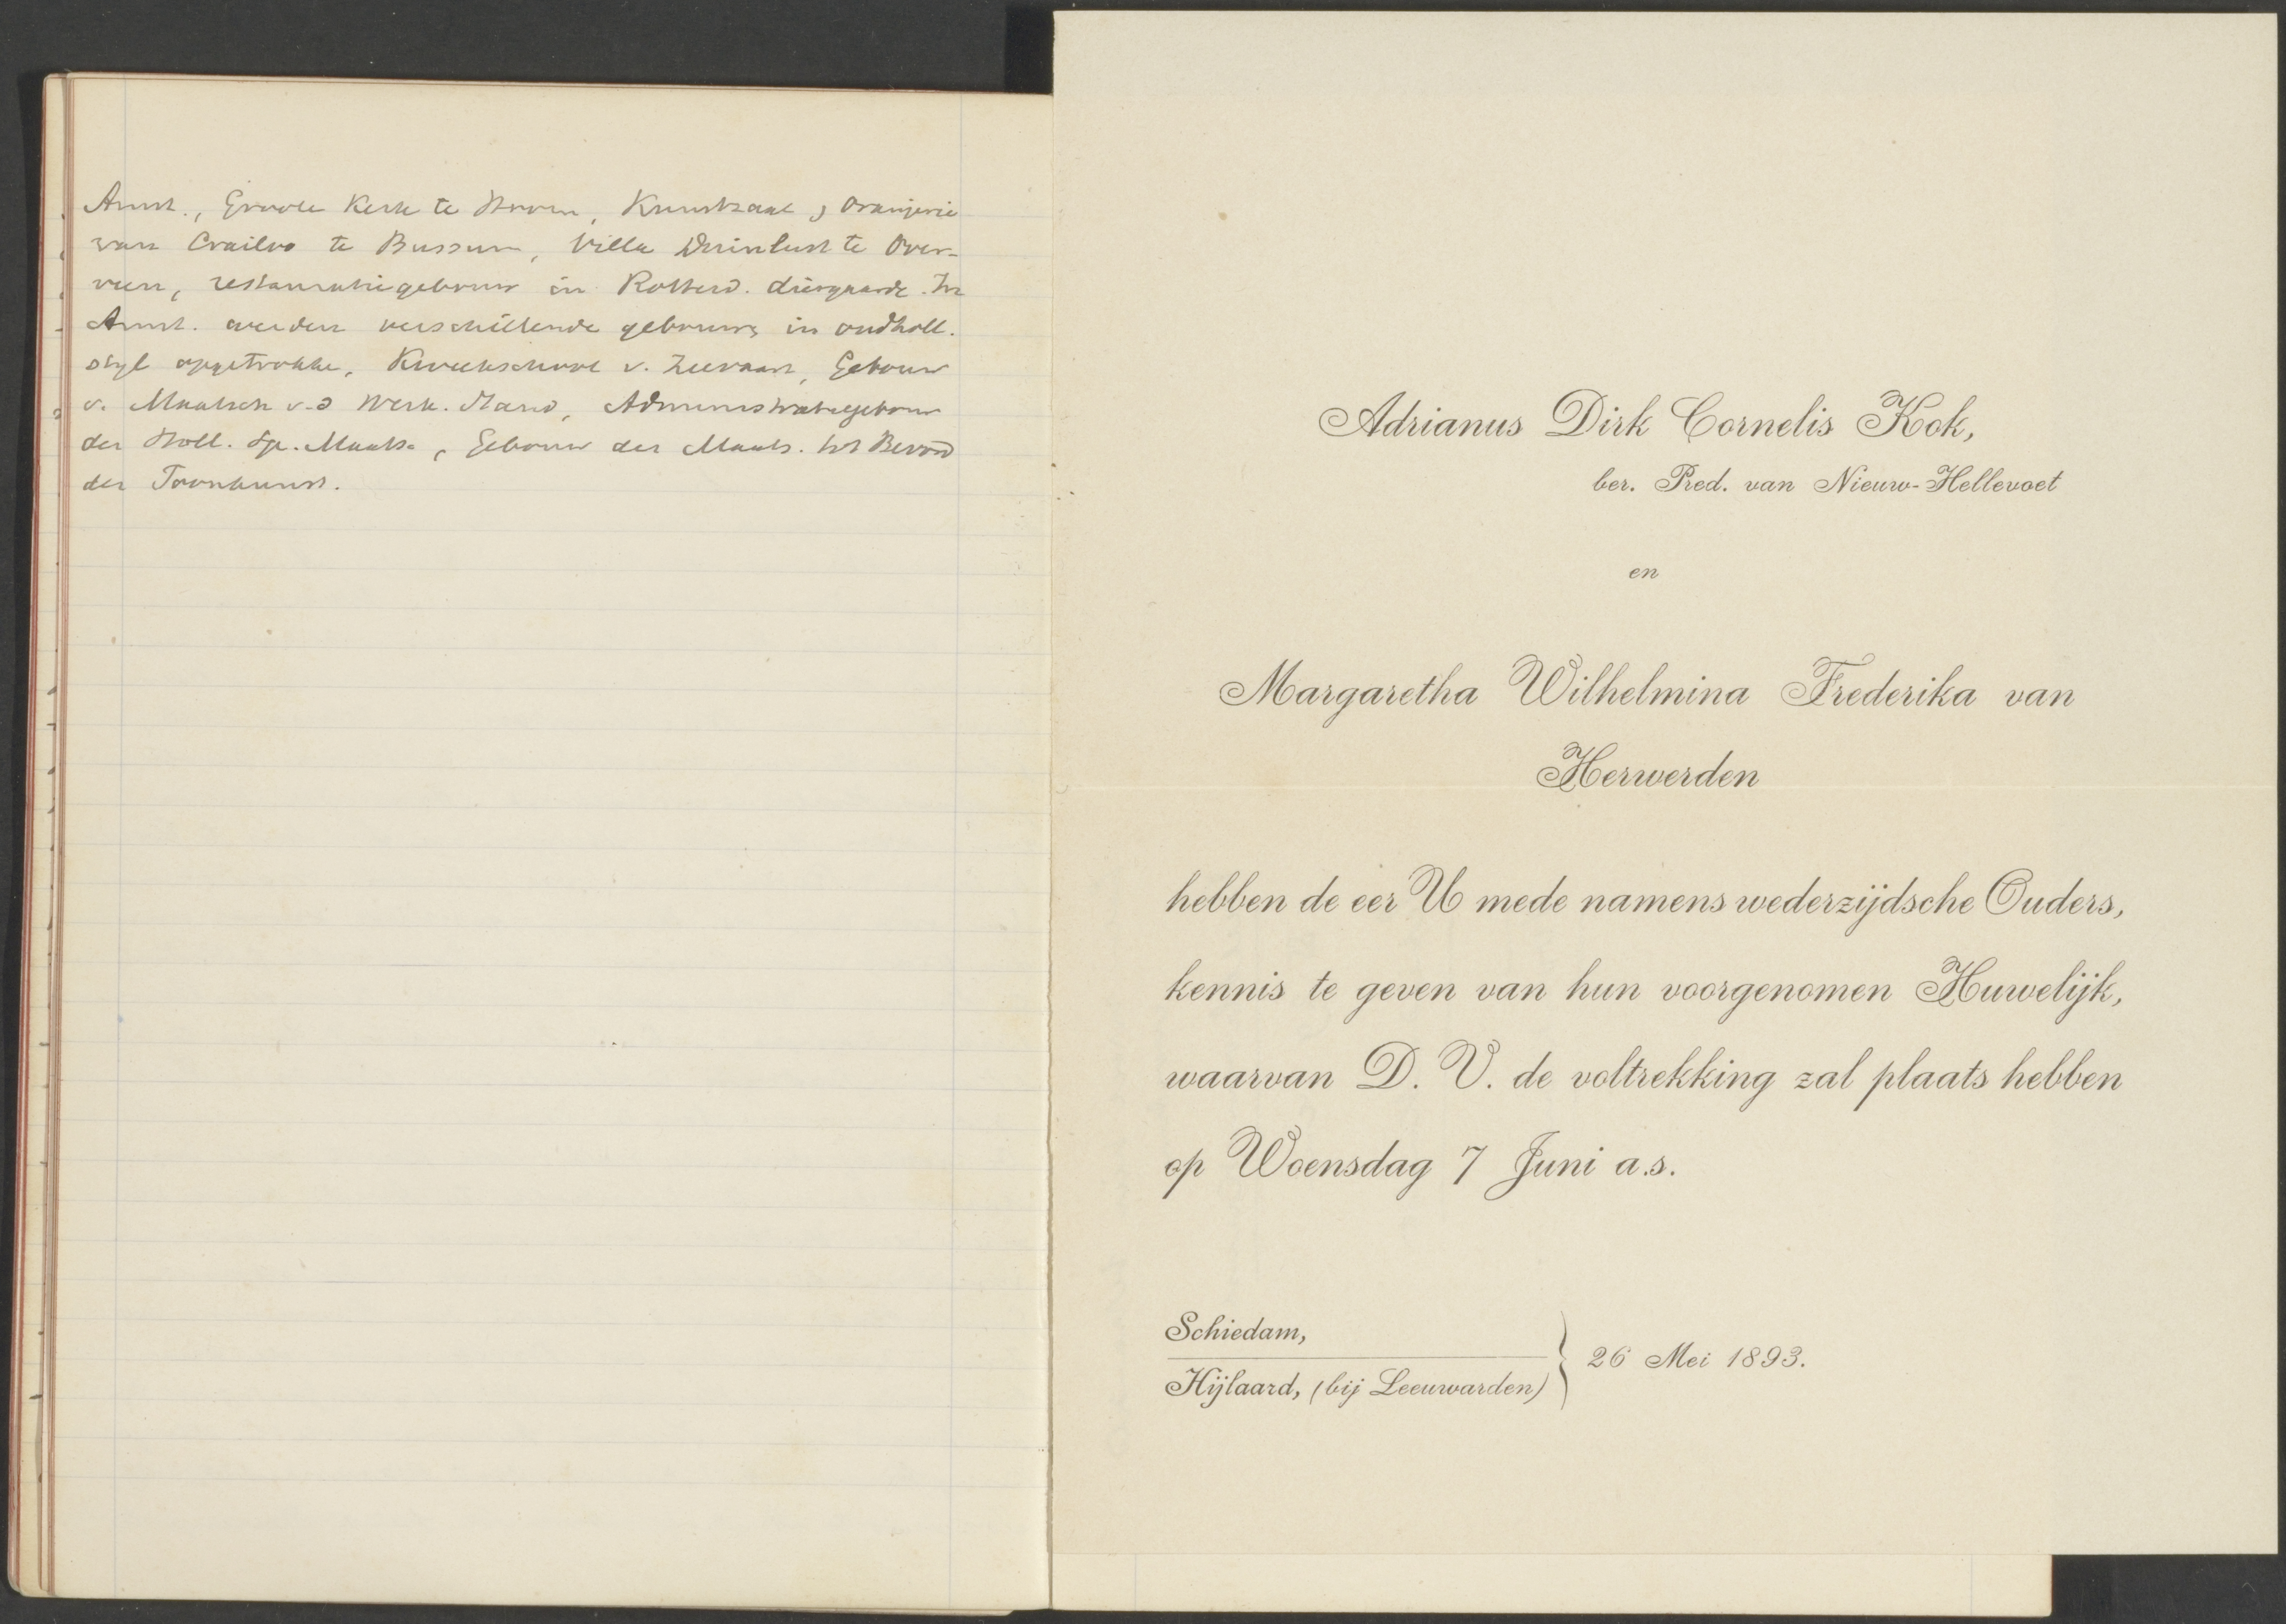 Amst., Groote Kerk te Hoorn, Kunstzaal, Oranjerie
van Crailoo te Bussum, Villa Duinlust te Over-
veen, restauratiegebouw in Rotterd. diergaarde. In
Amst. werden verschillende gebouwen in oudholl.
stijl opgetrokke, Kweekschool v. Zeevaart, Gebouw
v. Maatsch v.d Werk. Stand, Administratiegebouw
der Holl. Sp. Maats., Gebouw der Maats. tot Bevord
der Toonkunst.
Adrianus Dirk Cornelis Kok,
ber. Pred. van Nieuw-Hellevoet
en
Margaretha Wilhelmina Frederika van
Herwerden
hebben de eer U mede namens wederzijdsche Ouders,
kennis te geven van hun voorgenomen Huwelijk,
waarvan D. V. de voltrekking zal plaats hebben
op Woensdag 7 Juni a.s.
Schiedam,
Hijlaard, (bij Leeuwarden) } 26 Mei 1893.